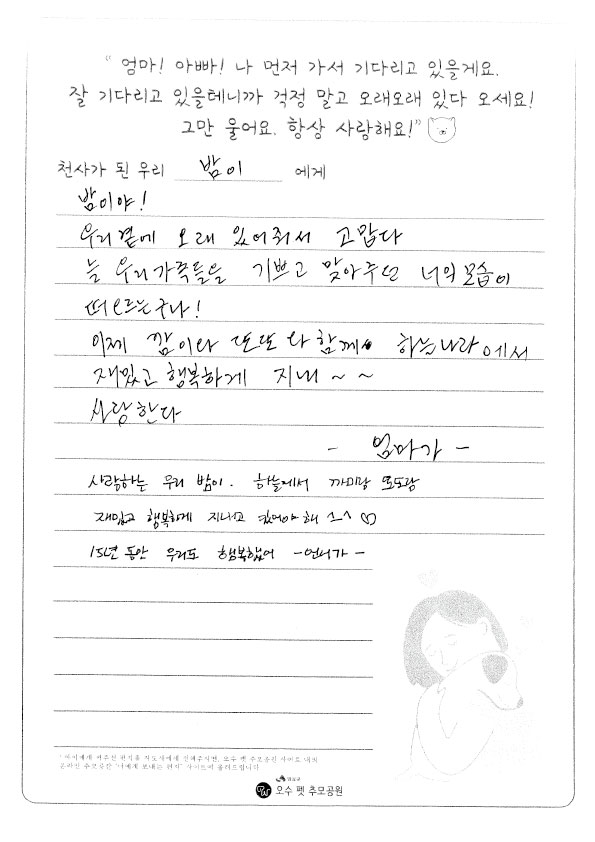 " 엄마! 아빠! 나 먼저 가서 기다리고 있을게요.
잘 기다리고 있을테니까 걱정 말고 오래오래 있다 오세요!
그만 울어요. 항상 사랑해요!"
천사가 된 우리 밤이 에게
밤이야!
우리곁에 오래 있어줘서 고맙다
늘 우리가족들을 기쁘고 맞아주던 너의모습이
떠오르는구나!
이제 깜이와 또또와 함께 하늘나라에서
재밌고 행복하게 지내~~
사랑한다
- 엄마가 -
사랑하는 우리 밤이. 하늘에서 까미랑 또또랑
재밌고 행복하게 지내고 있어야 해 ^^ ♡
15년 동안 우리도 행복했어 -언니가-
온라인 추모공간 사이트에 올려드립니다
오수 펫 추모공원